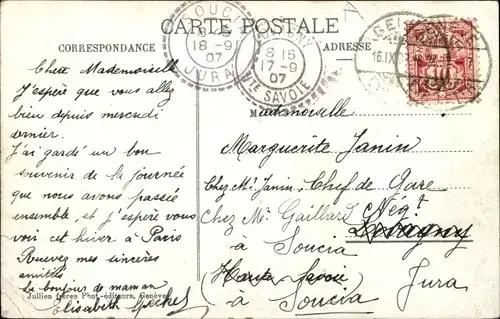 CARTE POSTALE
CORRESPONDANCE
ADRESSE
8 15
18 -9
07
JURA
8 15
17 -9
07
HTE SAVOIE
10
Chère Mademoiselle
J'espère que vous allez
bien depuis mercredi
dernier.
J'ai gardé un bon
souvenir de la journée
que nous avons passée
ensemble, et j'espère vous
voir cet hiver à Paris
Recevez mes sincères
amitiés
Le bonjour de maman
Elisabeth
Jullien frères Phot.-éditeurs, Genève
Mademoiselle
Marguerite Janin
Chez Mr Janin, Chef de Gare
Chez Mr Gaillard Négt
Lovagny
à Soucia
Haute Savoie
Jura
à Soucia